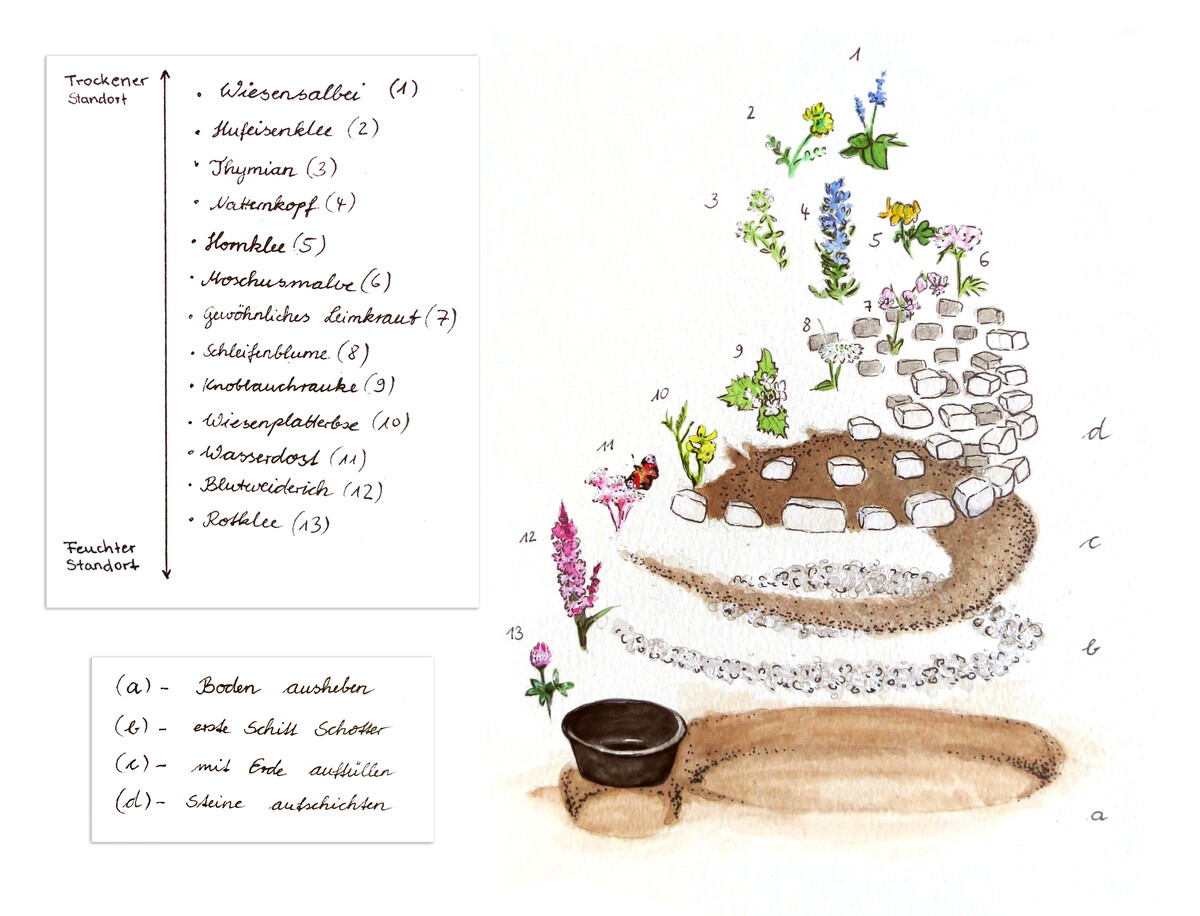 Trockener
Standort
• Wiesensalbei (1)
• Hufeisenklee (2)
• Thymian (3)
• Natternkopf (4)
• Hornklee (5)
• Moschusmalve (6)
• Gewöhnliches Leimkraut (7)
• Schleifenblume (8)
• Knoblauchrauke (9)
• Wiesenplatterbse (10)
• Wasserdost (11)
• Blutweiderich (12)
• Rotklee (13)
Feuchter
Standort
(a) - Boden ausheben
(b) - erste Schitt Schotter
(c) - mit Erde auffüllen
(d) - Steine aufschichten
1
2
3
4
5
6
7
8
9
10
11
12
13
d
c
b
a